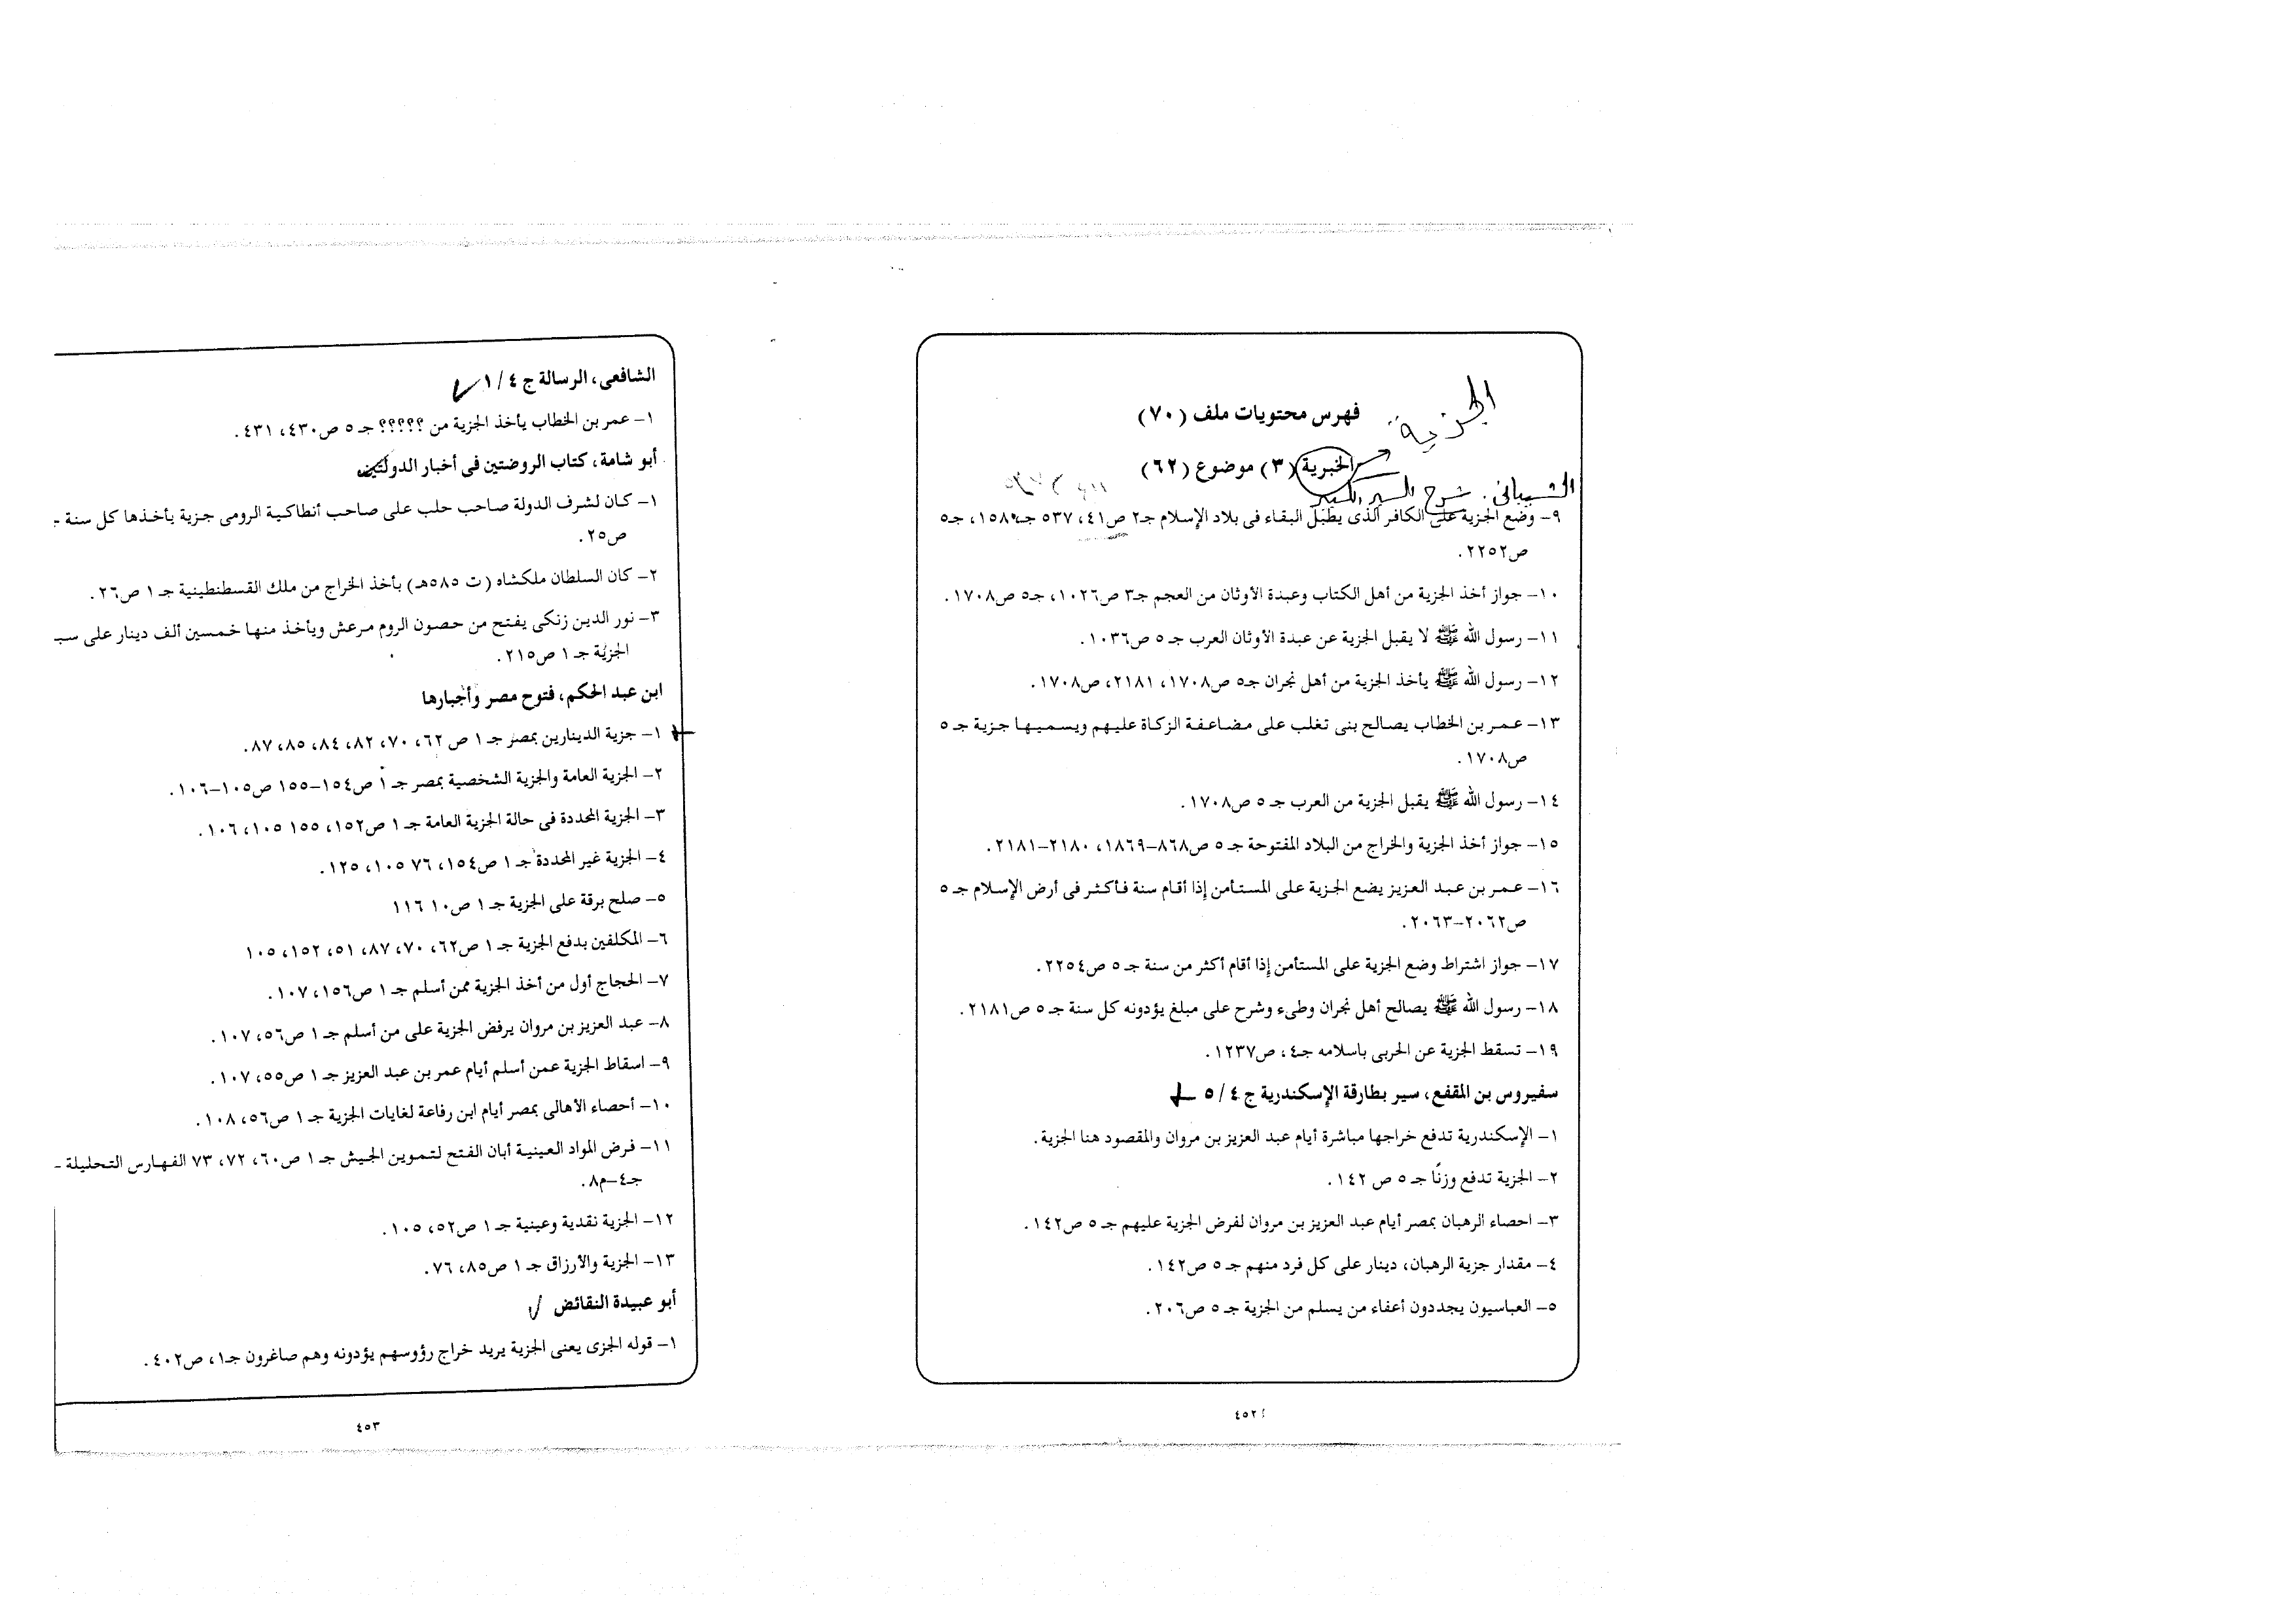 الجزية
فهرس محتويات ملف (٧٠)
الخبرية (٣) موضوع (٦٢)
الشيبانى. شرح السير الكبير
٩- وضع الجزية على الكافر الذى يطبَل البقاء فى بلاد الإسلام جـ٢ ص٤١، ٥٣٧ جـ، ١٥٨، جـ٥
ص٢٢٥٢.
١٠- جواز أخذ الجزية من أهل الكتاب وعبدة الأوثان من العجم جـ٣ ص١٠٢٦، جـ٥ ص١٧٠٨.
١١- رسول الله ﷺ لا يقبل الجزية عن عبدة الأوثان العرب جـ ٥ ص١٠٣٦.
١٢- رسول الله ﷺ يأخذ الجزية من أهل نجران جـ٥ ص١٧٠٨، ٢١٨١، ص١٧٠٨.
١٣- عمر بن الخطاب يصالح بنى تغلب على مضاعفة الزكاة عليهم ويسميها جزية جـ ٥
ص١٧٠٨.
١٤- رسول الله ﷺ يقبل الجزية من العرب جـ ٥ ص١٧٠٨.
١٥- جواز أخذ الجزية والخراج من البلاد المفتوحة جـ ٥ ص٨٦٨-١٨٦٩، ٢١٨٠-٢١٨١.
١٦- عمر بن عبد العزيز يضع الجزية على المستأمن إذا أقام سنة فأكثر فى أرض الإسلام جـ ٥
ص٢٠٦٢-٢٠٦٣.
١٧- جواز اشتراط وضع الجزية على المستأمن إذا أقام أكثر من سنة جـ ٥ ص٢٢٥٤.
١٨- رسول الله ﷺ يصالح أهل نجران وطىء وشرح على مبلغ يؤدونه كل سنة جـ ٥ ص٢١٨١.
١٩- تسقط الجزية عن الحربى باسلامه جـ٤، ص١٢٣٧.
سفيروس بن المقفع، سير بطارقة الإسكندرية ج ٤ / ٥
١- الإسكندرية تدفع خراجها مباشرة أيام عبد العزيز بن مروان والمقصود هنا الجزية.
٢- الجزية تدفع وزنًا جـ ٥ ص ١٤٢.
٣- احصاء الرهبان بمصر أيام عبد العزيز بن مروان لفرض الجزية عليهم جـ ٥ ص١٤٢.
٤- مقدار جزية الرهبان، دينار على كل فرد منهم جـ ٥ ص١٤٢.
٥- العباسيون يجددون أعفاء من يسلم من الجزية جـ ٥ ص٢٠٦.
٤٥٢
الشافعى، الرسالة ج ٤ / ١
١- عمر بن الخطاب يأخذ الجزية من ؟؟؟؟؟ جـ ٥ ص٤٣٠، ٤٣١.
أبو شامة، كتاب الروضتين فى أخبار الدولتين
١- كان لشرف الدولة صاحب حلب على صاحب أنطاكية الرومى جزية يأخذها كل سنة جـ
ص٢٥.
٢- كان السلطان ملكشاه (ت ٥٨٥هـ) بأخذ الخراج من ملك القسطنطينية جـ ١ ص٢٦.
٣- نور الدين زنكى يفتح من حصون الروم مرعش ويأخذ منها خمسين ألف دينار على سبـ
الجزية جـ ١ ص٢١٥.
ابن عبد الحكم، فتوح مصر وأجبارها
١- جزية الدينارين بمصر جـ ١ ص ٦٢، ٧٠، ٨٢، ٨٤، ٨٥، ٨٧.
٢- الجزية العامة والجزية الشخصية بمصر جـ ١ ص١٥٤-١٥٥ ص١٠٥-١٠٦.
٣- الجزية المحددة فى حالة الجزية العامة جـ ١ ص١٥٢، ١٥٥ ١٠٥، ١٠٦.
٤- الجزية غير المحددة جـ ١ ص١٥٤، ٧٦ ١٠٥، ١٢٥.
٥- صلح برقة على الجزية جـ ١ ص١٠ ١١٦
٦- المكلفين بدفع الجزية جـ ١ ص٦٢، ٧٠، ٨٧، ٥١، ١٥٢، ١٠٥
٧- الحجاج أول من أخذ الجزية ممن أسلم جـ ١ ص١٥٦، ١٠٧.
٨- عبد العزيز بن مروان يرفض الجزية على من أسلم جـ ١ ص٥٦، ١٠٧.
٩- اسقاط الجزية عمن أسلم أيام عمر بن عبد العزيز جـ ١ ص٥٥، ١٠٧.
١٠- أحصاء الأهالى بمصر أيام ابن رفاعة لغايات الجزية جـ ١ ص٥٦، ١٠٨.
١١- فرض المواد العينية أبان الفتح لتموين الجيش جـ ١ ص٦٠، ٧٢، ٧٣ الفهارس التحليلة -
جـ٤-م٨.
١٢- الجزية نقدية وعينية جـ ١ ص٥٢، ١٠٥.
١٣- الجزية والأرزاق جـ ١ ص٨٥، ٧٦.
أبو عبيدة النقائض
١- قوله الجزى يعنى الجزية يريد خراج رؤوسهم يؤدونه وهم صاغرون جـ١، ص٤٠٢.
٤٥٣